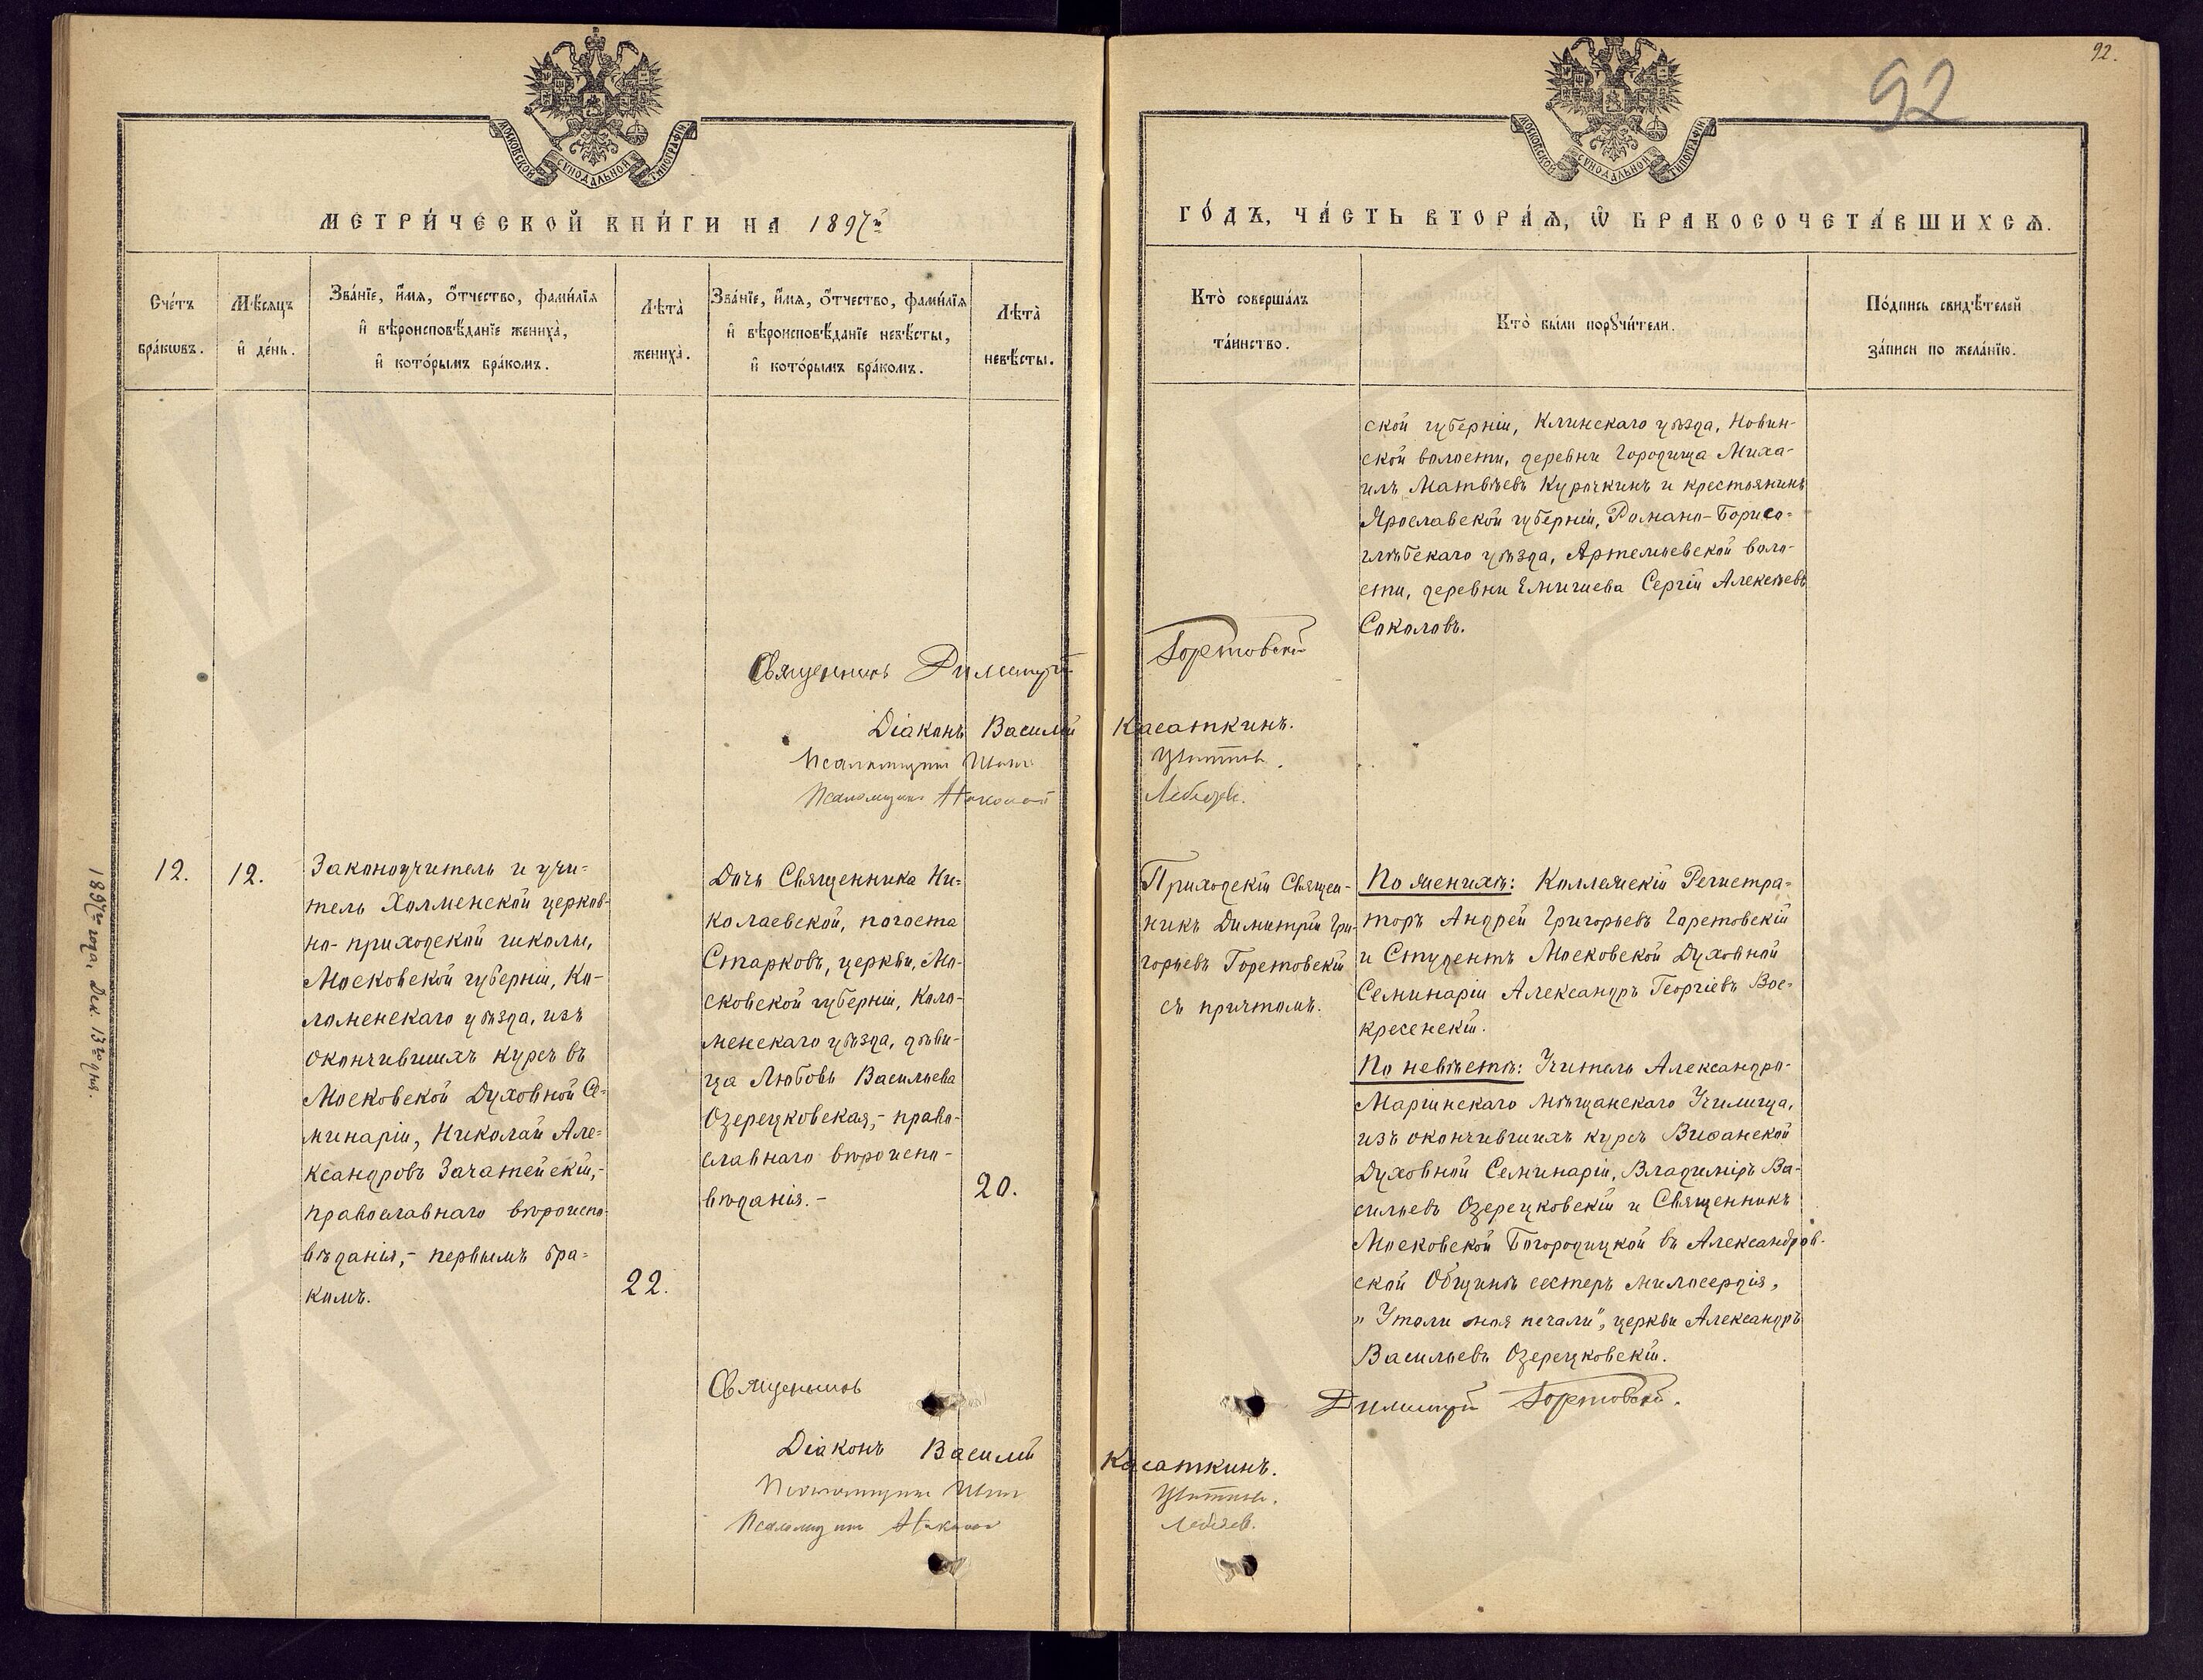 92.
92
МОСКОВСКОЙ СУНОДАЛЬНОЙ ТИПОГРАФІИ
МОСКОВСКОЙ СУНОДАЛЬНОЙ ТИПОГРАФІИ
МЕТРИ́ЧЕСКОЙ КНИ́ГИ НА 1897й
ГО́ДЪ, ЧА́СТЬ ВТОРА́Ѧ, Ѿ БРАКОСОЧЕТА́ВШИХСѦ.
Сче́тъ
бра́кѡвъ.
Мѣ́сѧцъ
и҆ де́нь.
Зва́нїе, и҆́мѧ, ѻ҆́тчество, фами́лїѧ
и҆ вѣроисповѣ́данїе жениха̀,
и҆ кото́рымъ бра́комъ.
Лѣта̀
жениха̀.
Зва́нїе, и҆́мѧ, ѻ҆́тчество, фами́лїѧ
и҆ вѣроисповѣ́данїе невѣ́сты,
и҆ кото́рымъ бра́комъ.
Лѣта̀
невѣ́сты.
Кто̀ соверша́лъ
та́инство.
Кто̀ бы́ли порꙋчи́тели.
По́дпись свидѣ́телей
за́писи по жела́нїю.
ской губерніи, Клинскаго уѣзда, Новин-
ской волости, деревни Городища Миха-
илъ Матвѣевъ Курочкинъ и крестьянинъ
Ярославской губерніи, Романо-Борисо-
глѣбскаго уѣзда, Артемьевской воло-
сти, деревни Емишева Сергій Алексѣевъ
Соколовъ.
Священникъ Димитрій Горетовскій
Діаконъ Василій Касаткинъ.
Псаломщикъ Иванъ Цвѣтковъ.
Псаломщикъ Николай Лебедевъ.
1897го года, Дек. 13го дня.
12.
12.
Законоучитель и учи-
тель Холменской церков-
но-приходской школы,
Московской губерніи, Ко-
ломенскаго уѣзда, изъ
окончившихъ курсъ въ
Московской Духовной Се-
минаріи, Николай Але-
ксандровъ Зачатейскій,-
православнаго вѣроиспо-
вѣданія,- первымъ бра-
комъ.
22.
Дочь Священника Ни-
колаевской, погоста
Старковъ, церкви, Мо-
сковской губерніи, Коло-
менскаго уѣзда, дѣви-
ца Любовь Васильева
Озерецковская,- право-
славнаго вѣроиспо-
вѣданія.-
20.
Приходскій Священ-
никъ Димитрій Гри-
горьевъ Горетовскій
съ причтомъ.
По женихѣ: Коллежскій Регистра-
торъ Андрей Григорьевъ Горетовскій
и Студентъ Московской Духовной
Семинаріи Александръ Георгіевъ Вос-
кресенскій.
По невѣстѣ: Учитель Александро-
Маріинскаго Мѣщанскаго Училища,
изъ окончившихъ курсъ Виѳанской
Духовной Семинаріи, Владиміръ Ва-
сильевъ Озерецковскій и Священникъ
Московской Богородицкой въ Александров-
ской Общинѣ сестеръ милосердія,
„Утоли моя печали", церкви Александръ
Васильевъ Озерецковскій.
Священникъ Димитрій Горетовскій.
Діаконъ Василій Касаткинъ.
Псаломщикъ Иванъ Цвѣтковъ.
Псаломщикъ Николай Лебедев.